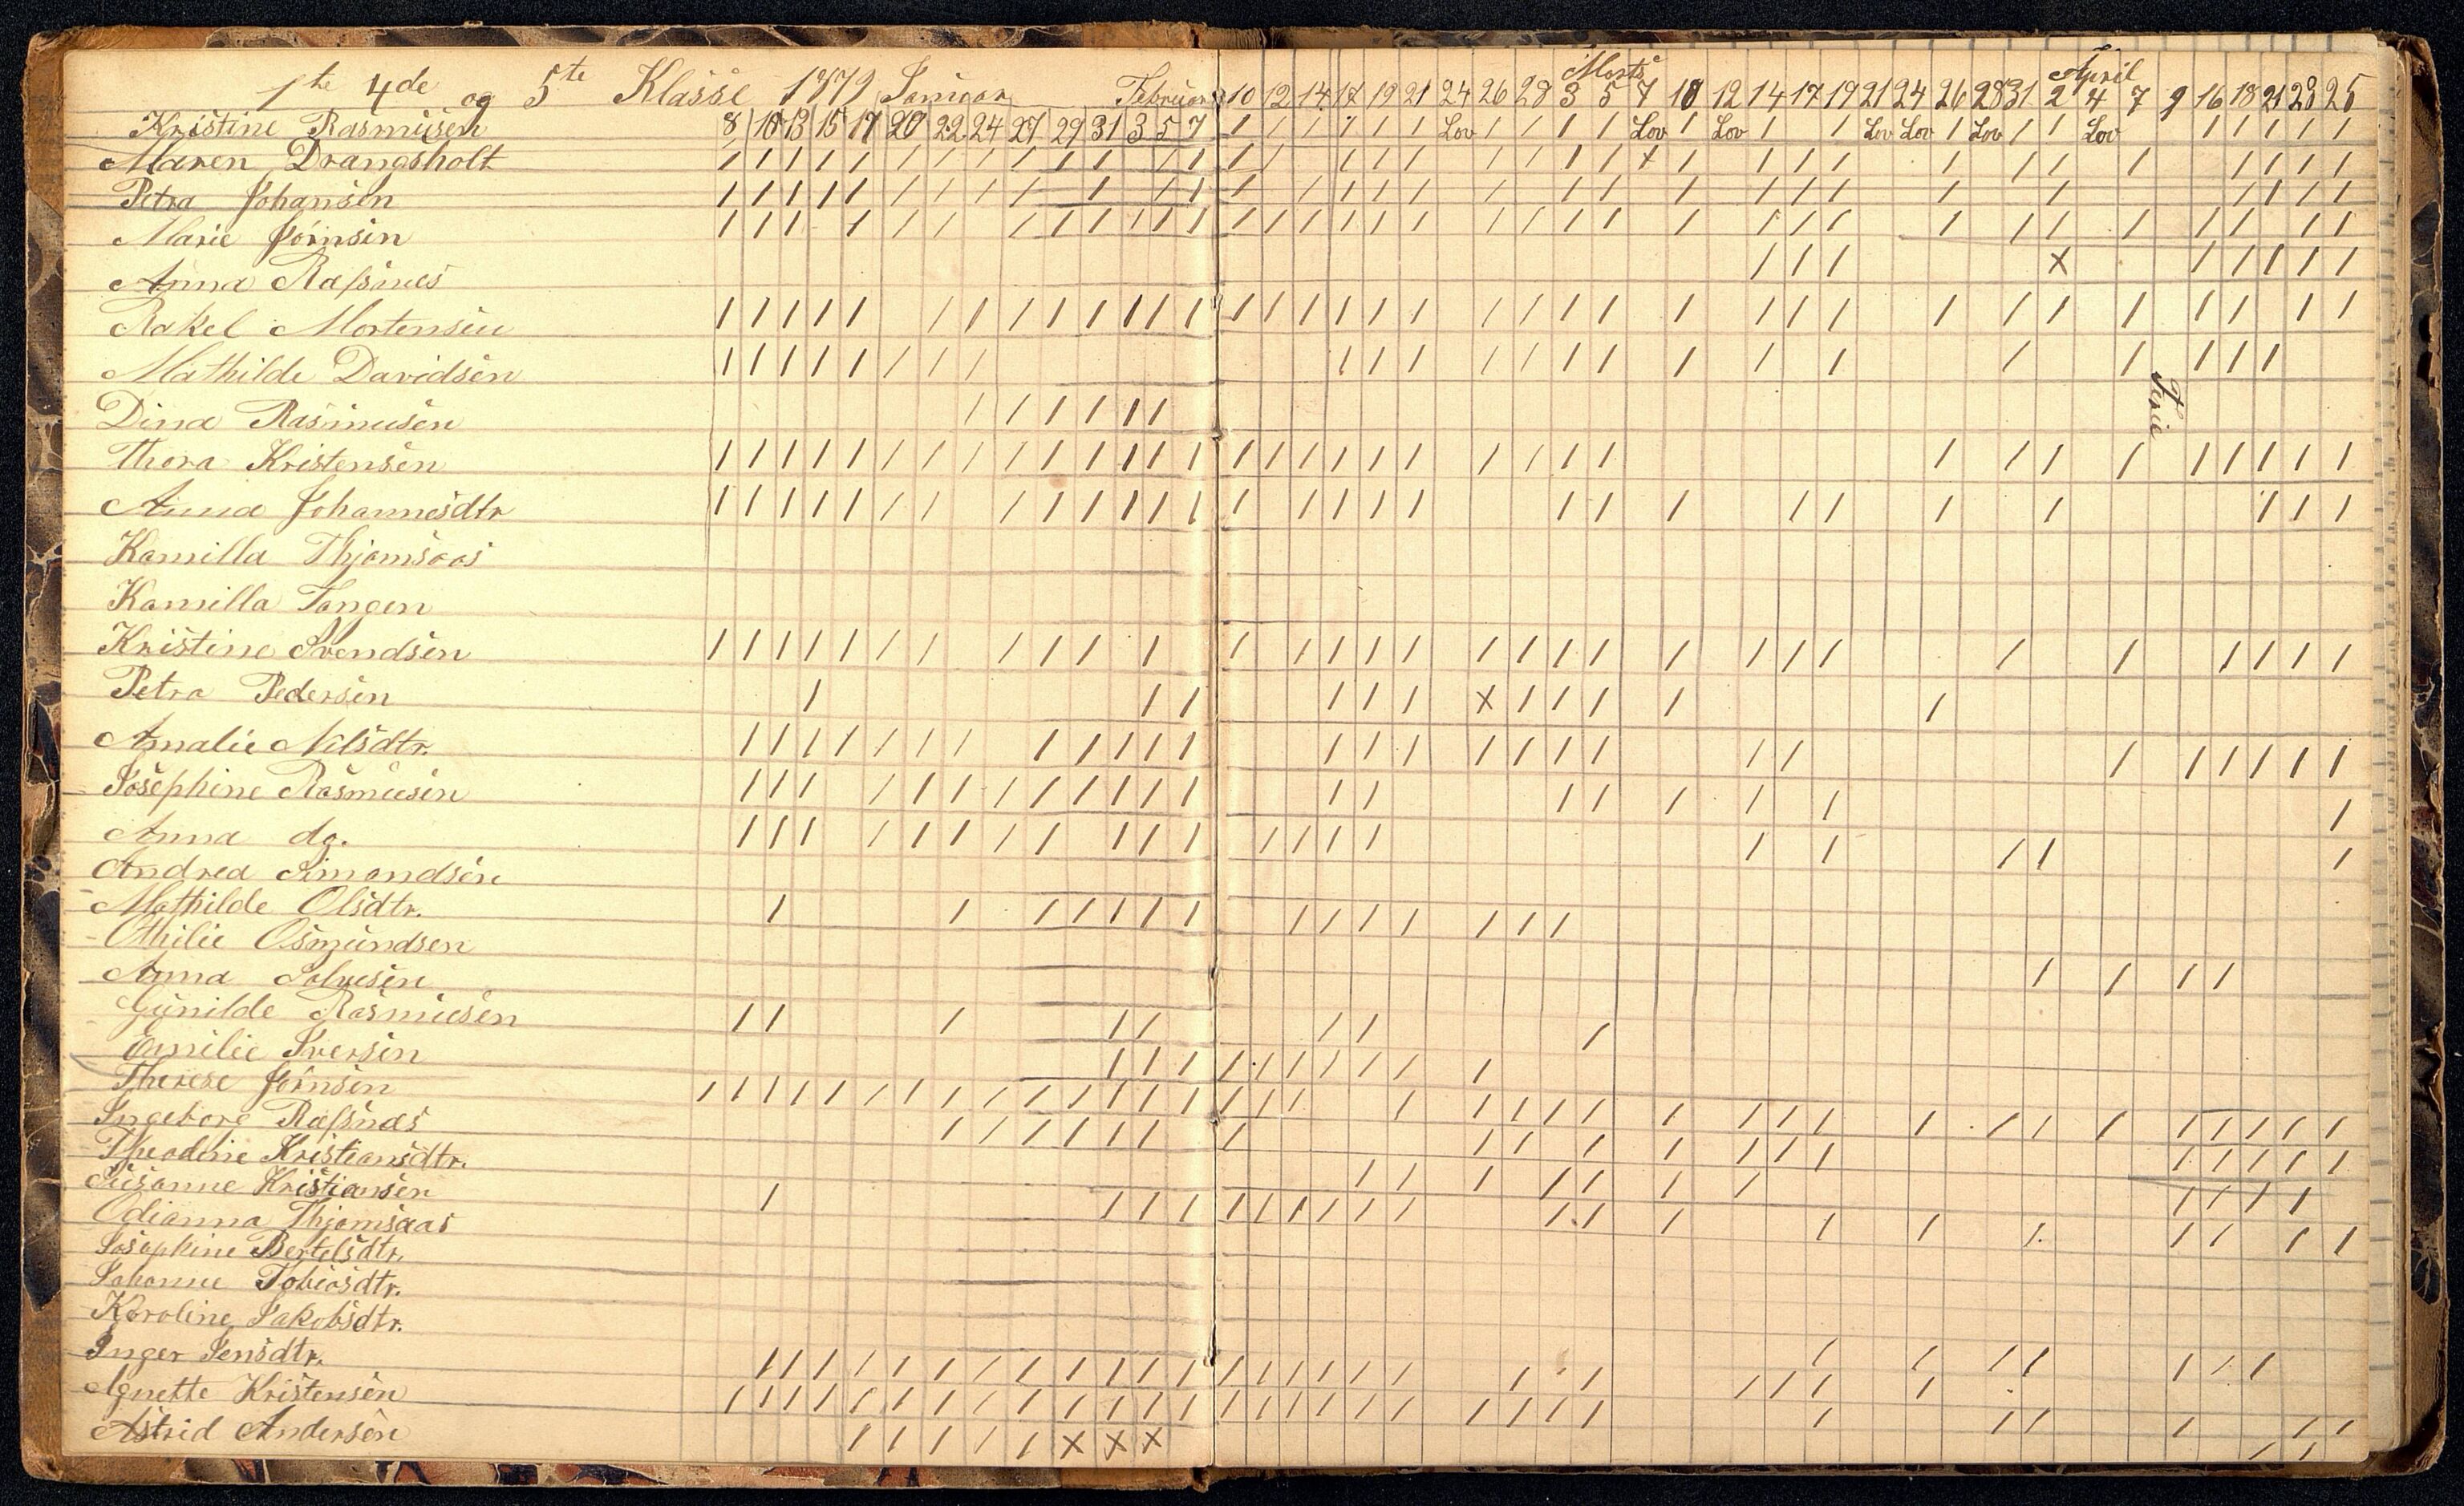 1te 4de og 5te Klasse 1879 Januar Februar Marts April
10 12 14 17 19 21 24 26 28 3 5 7 10 12 14 17 19 21 24 26 28 31 2 4 7 9 16 18 21 23 25
Kristine Rasmusen 8 10 13 15 17 20 22 24 27 29 31 3 5 7 / / / / / / Lov / / / / Lov / Lov / / Lov Lov / Lov / / Lov / / / / /
Maren Drangsholt
Petra Johansen
Marie Jörnsen
Anna Ræfsnes
Rakel Mortensen
Mathilde Davidsen
Ferie
Dina Rasmusen
Thora Kristensen
Anna Johannesdtr
Kamilla Thjomsaas
Kamilla Tangen
Kristine Svendsen
Petra Pedersen
Amalie Nilsdtr.
Josephine Rasmusen
Anna do.
Andrea Simondsen
Mathilde Olsdtr.
Othilie Osmundsen
Anna Salvesen
Gunilde Rasmusen
Emilie Iversen
Therese Jörnsen
Ingeborg Ræfsnæs
Theodine Kristiansdtr.
Susanne Kristiansen
Odianna Thjomsaas
Josephine Bertelsdtr.
Johanne Tobiasdtr.
Karoline Jakobsdtr.
Inger Jensdtr.
Agnette Kristensen
Astrid Andersen